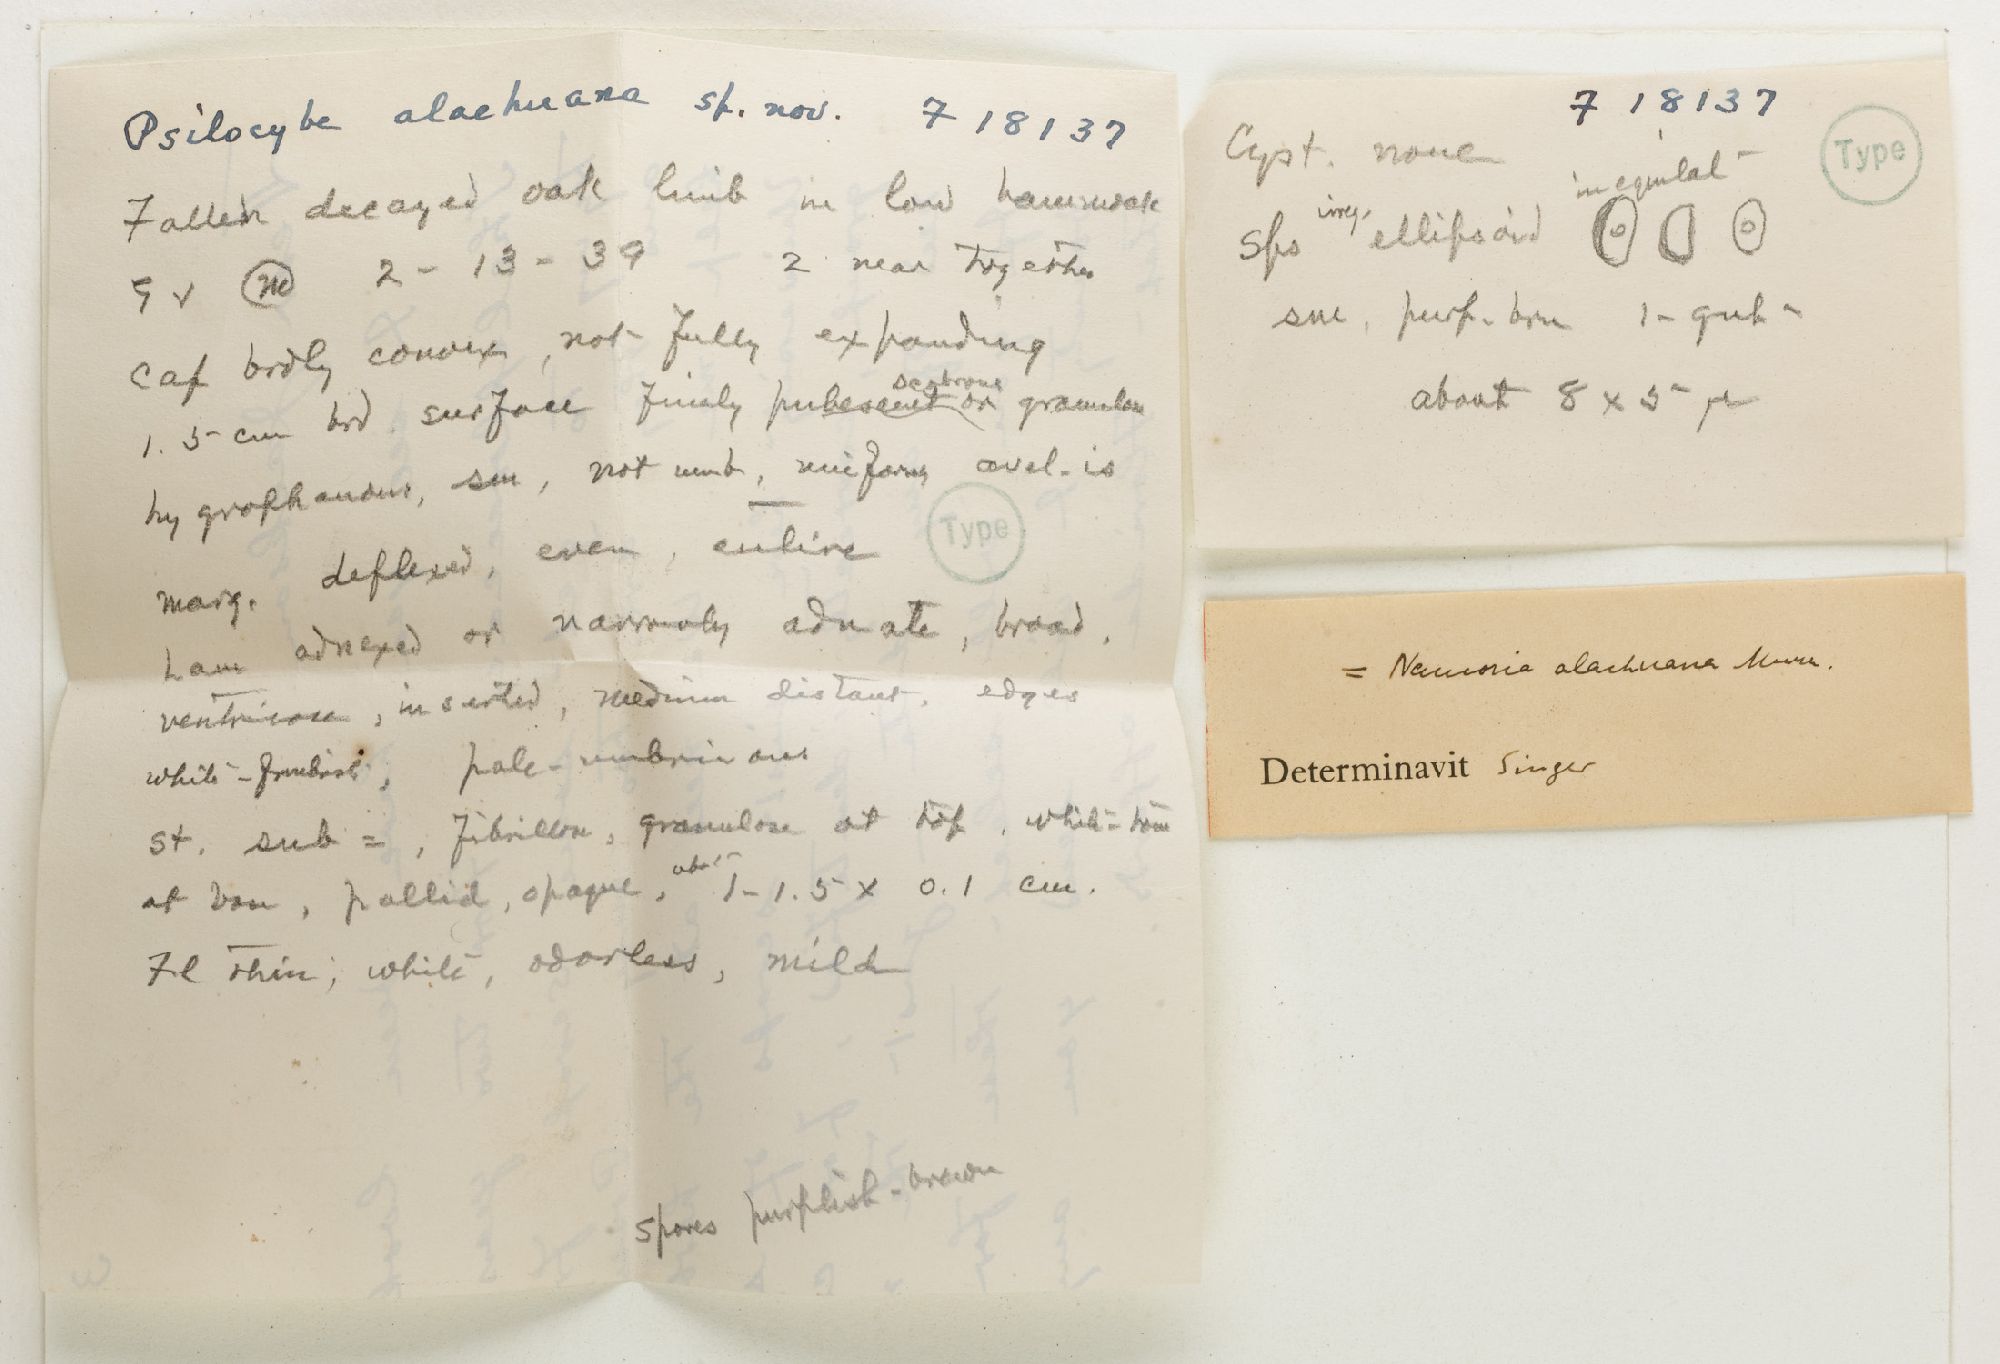 Psilocybe alachuana sp. nov. F 18137
Fallen decayed oak limb in low hammock
Gv 2-13-39 2 near together
Cap brdly convex, not fully expanding
1.5 cm brd. surface finely pubescent or granulose
scabrous
hygrophanous, sm, not umb, uniform, avel-is
Type
marg. deflexed, even, entire
Lam adnexed or narrowly adnate, broad,
ventricose, inserted, medium distant, edges
white-fimbriate, pale-umbrinous
st. sub =, fibrillose, granulose at top, white-tom
at base, pallid, opaque, 1-1.5 x 0.1 cm.
Fl thin, white, odorless, mild
Spores purplish-brown
F 18137
Type
Cyst. none
inequilat-
Sps irreg. ellipsoid
sm, purp-brn 1-gut-
about 8 x 5 µ
= Naucoria alachuana Murr.
Determinavit Singer